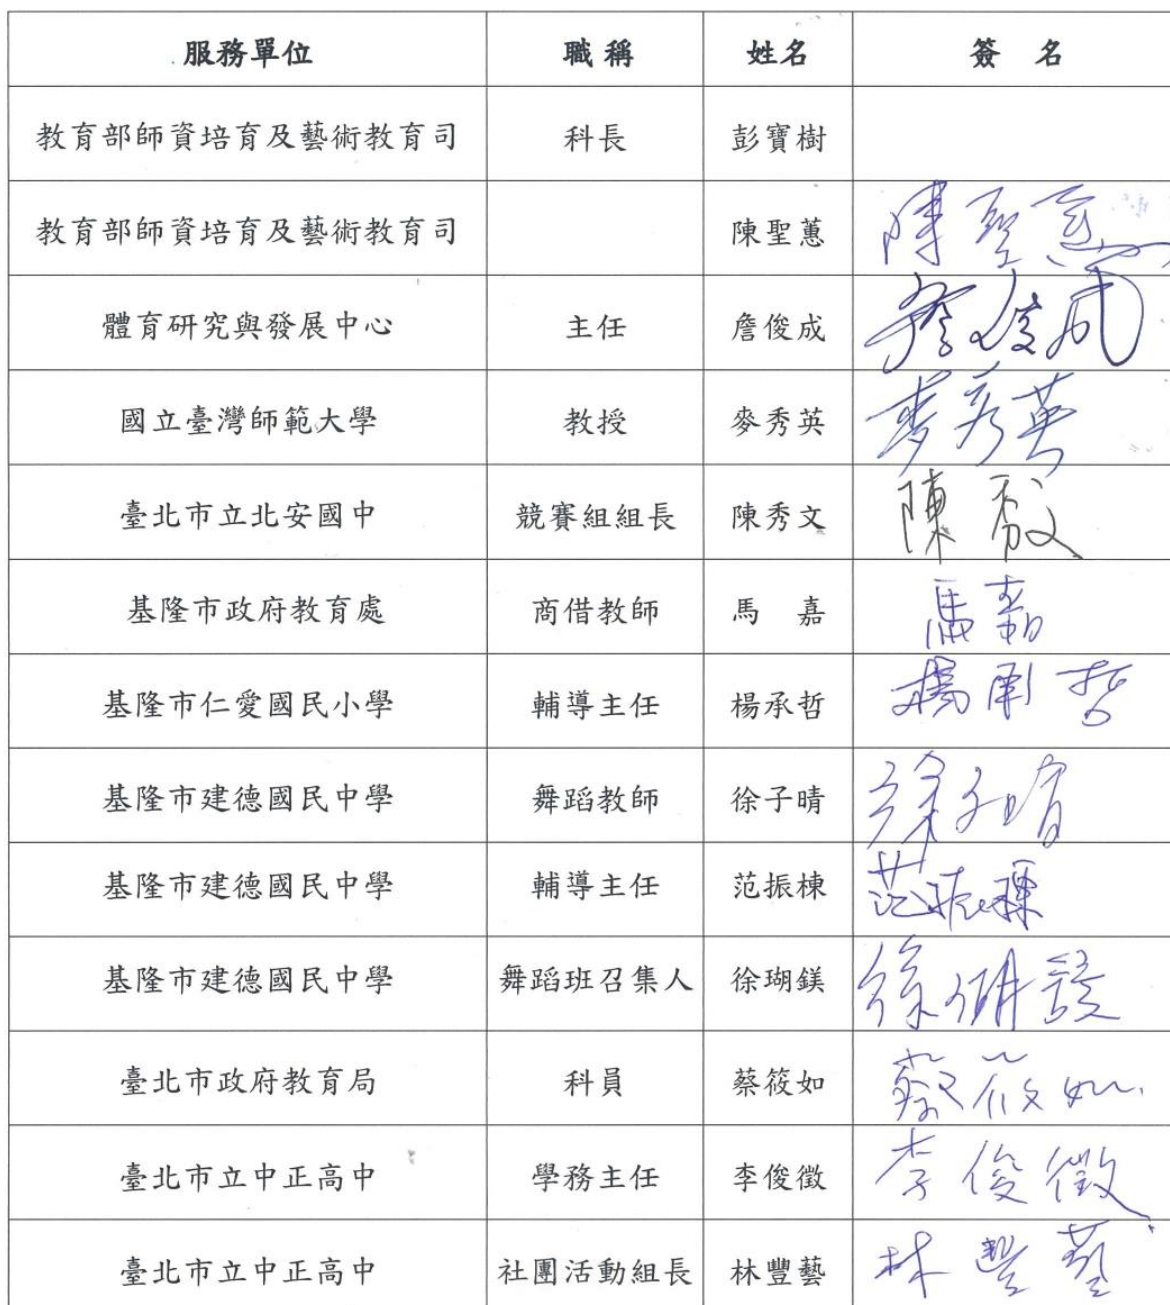 服務單位 職稱 姓名 簽 名
教育部師資培育及藝術教育司 科長 彭寶樹
教育部師資培育及藝術教育司 陳聖蕙 陳聖蕙
體育研究與發展中心 主任 詹俊成 詹俊成
國立臺灣師範大學 教授 麥秀英 麥秀英
臺北市立北安國中 競賽組組長 陳秀文 陳秀文
基隆市政府教育處 商借教師 馬 嘉 馬嘉
基隆市仁愛國民小學 輔導主任 楊承哲 楊承哲
基隆市建德國民中學 舞蹈教師 徐子晴 徐子晴
基隆市建德國民中學 輔導主任 范振棟 范振棟
基隆市建德國民中學 舞蹈班召集人 徐瑚鎂 徐瑚鎂
臺北市政府教育局 科員 蔡筱如 蔡筱如
臺北市立中正高中 學務主任 李俊徵 李俊徵
臺北市立中正高中 社團活動組長 林豐藝 林豐藝